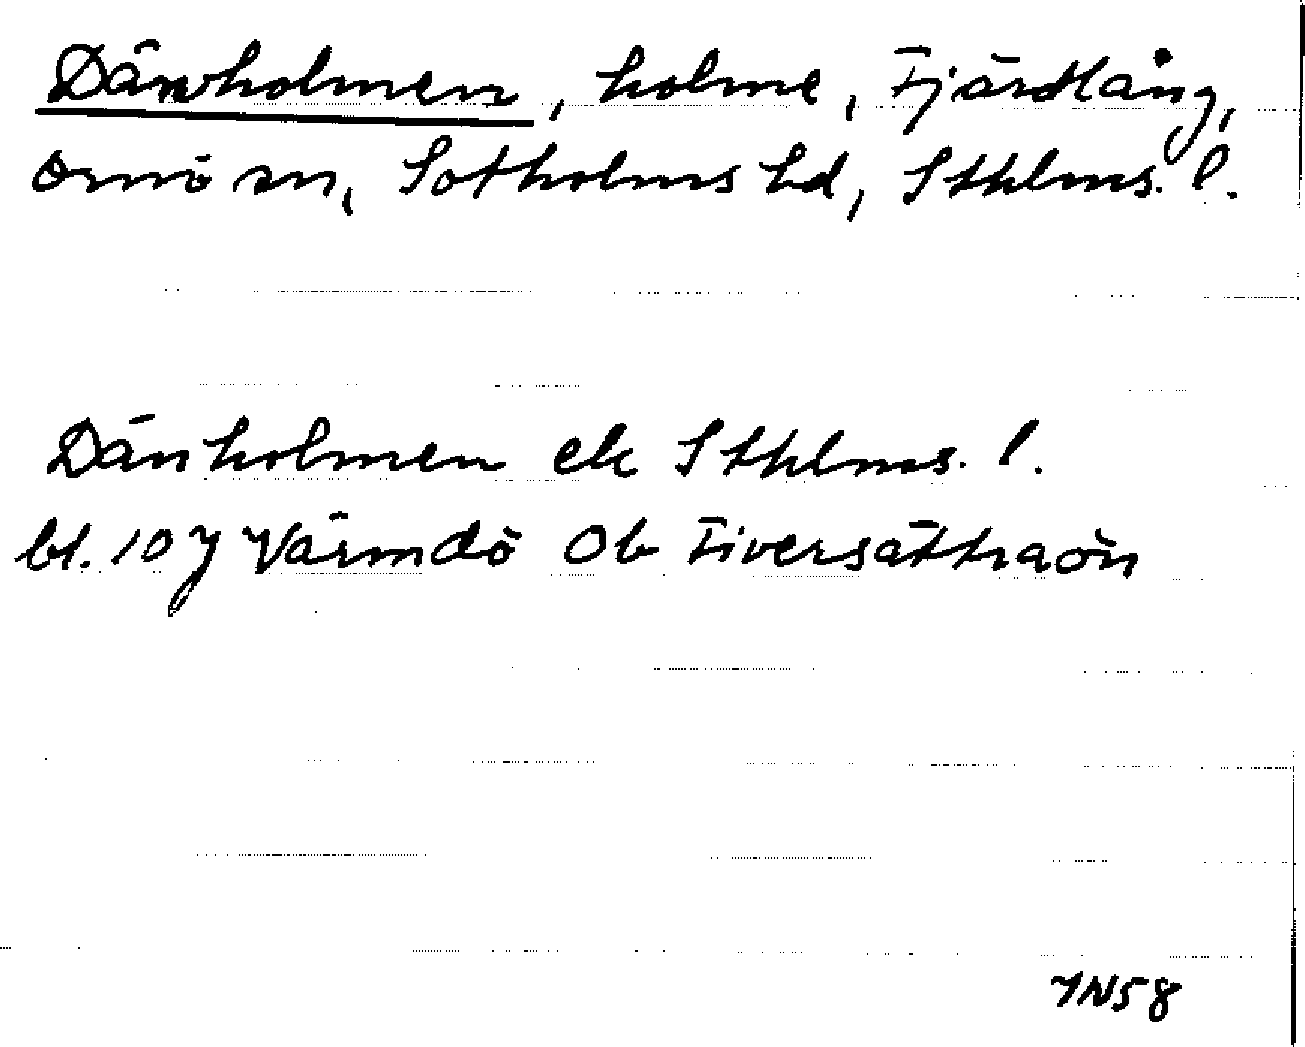 Dänholmen, holme, Fjärdlång,
Ornö sn, Sotholms hd, Sthlms. l.
Dänholmen ek Sthlms. l.
bl. 107 Värmdö Ob Fiversättraön
YN58